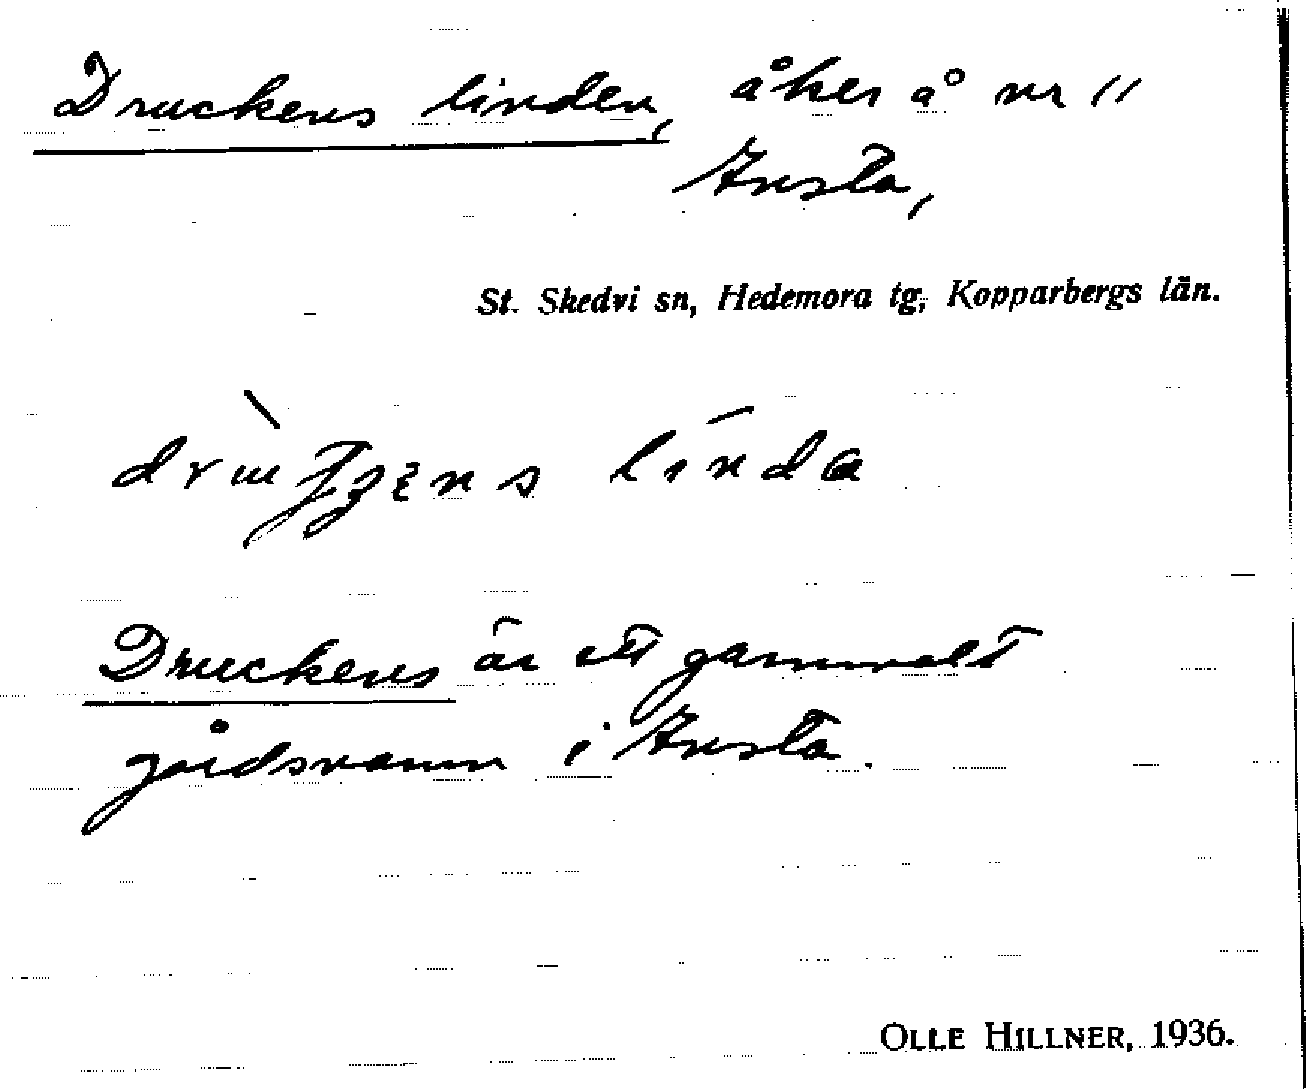 Druckens linden, åker å nr 11
Knsta,
St. Skedvi sn, Hedemora tg, Kopparbergs län.
linda
Druckens är ett gammalt
gårdsnamn i Knsta.
OLLE HILLNER, 1936.